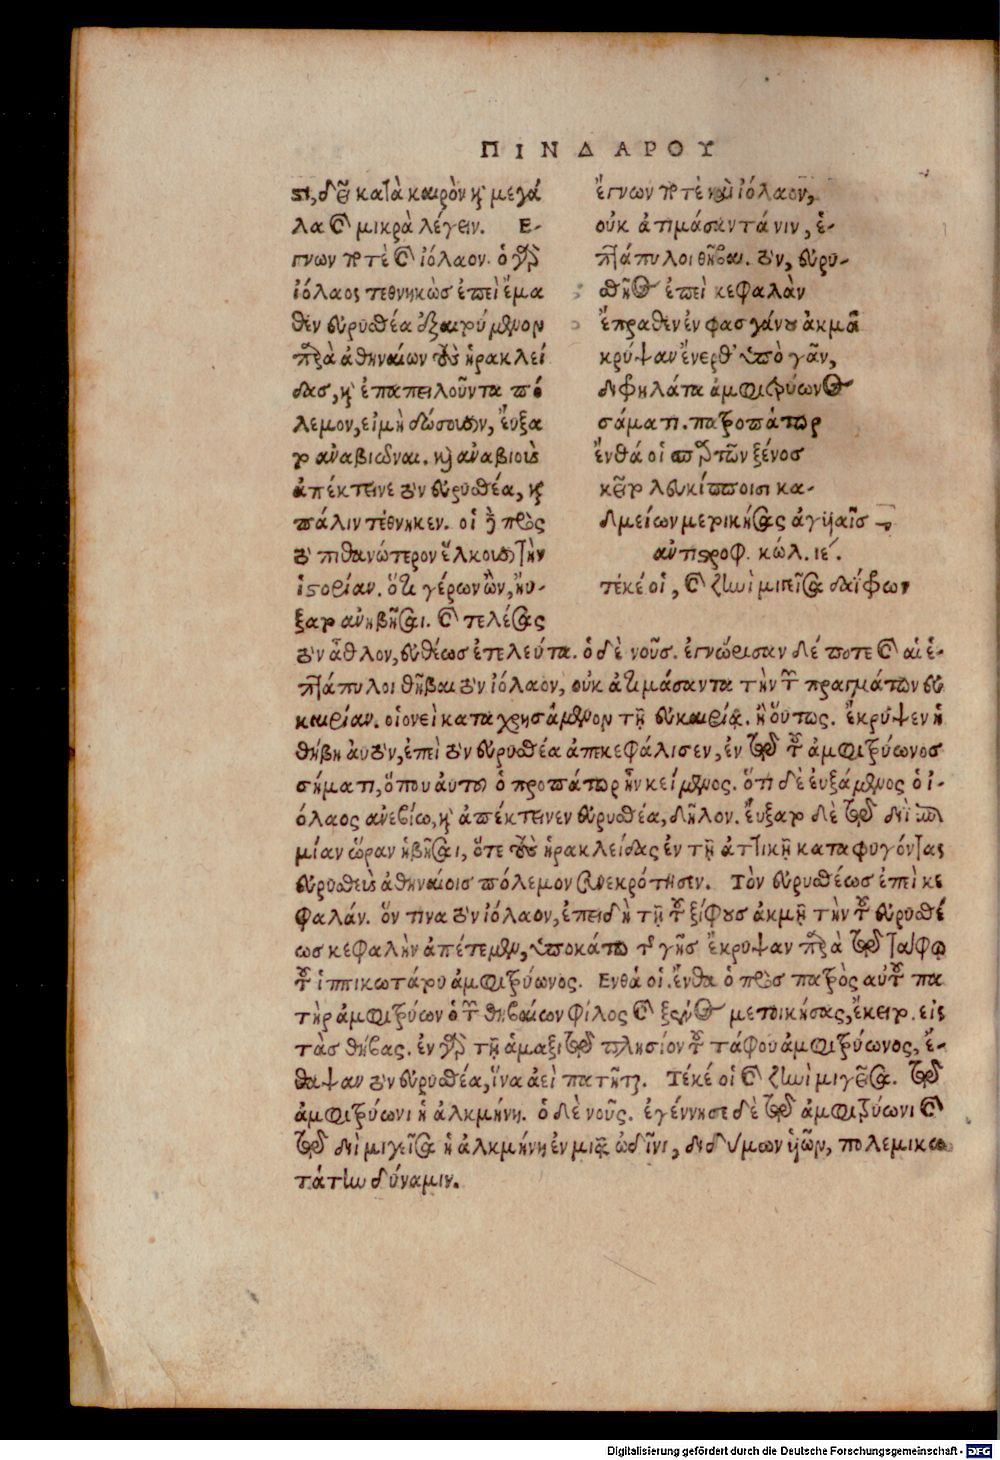 ΠΙΝΔΑΡΟΥ
ϛι, δεῖ κατὰ καιρὸν καὶ μεγά
λα καὶ μικρὰ λέγειν. Ε-
γνων ποτὲ καὶ ἰόλαον. ὁ γὰρ
ἰόλαος τεθνηκὼς ἐπεὶ ἔμα
θεν εὐρυσθέα ἐξαιρούμενον
παρὰ ἀθηναίων τοὺς ἡρακλεί
δας, καὶ ἐπαπειλοῦντα πό
λεμον, εἰ μὴ δώσουσιν, ἔυξα
το ἀναβιῶναι. καὶ ἀναβιοὺς
ἀπέκτεινε τὸν εὐρυσθέα, καὶ
πάλιν τέθνηκεν. οἱ δὲ πρὸς
τὸ πιθανώτερον ἕλκουσι τὴν
ἱστορίαν. ὅτι γέρων ὢν, ἤυ-
ξατο ἀνηβῆσαι. καὶ τελέσας
τὸν ἆθλον, εὐθέως ἐπελεύτα. ὁ δὲ νοῦς. ἐγνώρισαν δέ ποτε καὶ αἱ ἑ-
πτάπυλοι θῆβαι τὸν ἰόλαον, οὐκ ἀτιμάσαντα τὴν τῶν πραγμάτων εὐ
καιρίαν. οἱονεὶ καταχρησάμενον τῇ εὐκαιρίᾳ. ἢ οὕτως. ἔκρυψεν ἡ
θήβη αὐτὸν, ἐπεὶ τὸν εὐρυσθέα ἀπεκεφάλισεν, ἐν τῷ τοῦ ἀμφιτρύωνος
σήματι, ὅπου ἀυτῶ ὁ προπάτωρ ἦν κείμενος. ὅτι δὲ ἐυξάμενος ὁ ἰ-
όλαος ἀνεβίω, καὶ ἀπέκτεινεν εὐρυσθέα, δῆλον. ἔυξατο δὲ τῷ διῒ
μίαν ὥραν ἡβῆσαι, ὅτε τοὺς ἡρακλείδας ἐν τῇ ἀττικῇ καταφυγόντας
εὐρυσθεὺς ἀθηναίοις πόλεμον συνεκρότησεν. Τὸν εὐρυσθέως ἐπὶ κε
φαλάν. ὅν τινα τὸν ἰόλαον, ἐπειδὴ τῇ τοῦ ξίφους ἀκμῇ τὴν τοῦ εὐρυσθέ
ως κεφαλὴν ἀπέτεμεν, ὑποκάτω τῆς γῆς ἔκρυψαν παρὰ τῷ ταφῳ
τοῦ ἱππικωτάτου ἀμφιτρύωνος. Ενθά οἱ. ἔνθα ὁ πρὸς πατρὸς αὐτοῦ πα
τὴρ ἀμφιτρύων ὁ τῶν θηβαίων φίλος καὶ ξένος μετοικήσας, ἔκειτο. εἰς
τὰς θήβας. ἐν γὰρ τῇ ἁμαξιτῷ πλησίον τοῦ τάφου ἀμφιτρύωνος, ἔ-
θαψαν τὸν εὐρυσθέα, ἵνα ἀεὶ πατῆται. Τέκέ οἱ καὶ ζηνὶ μιγεῖσα. τῷ
ἀμφιτρύωνι ἡ ἀλκμήνη. ὁ δὲ νοῦς. ἐγέννησε δὲ τῷ ἀμφιτρύωνι καὶ
τῷ διῒ μιγεῖσα ἡ ἀλκμήνη ἐν μιᾷ ὠδῖνι, διδύμων υἱῶν, πολεμικω
τάτην δύναμιν.
ἔγνων ποτὲ καὶ ἰόλαον,
οὐκ ἀτιμάσαντά νιν, ἑ-
πτάπυλοι θῆβαι. τὸν, εὐρυ-
σθῆος ἐπεὶ κεφαλὰν
ἔπραθεν ἐν φασγάνου ἀκμᾶ
κρύψαν ἔνερθ' ὑπὸ γᾶν,
διφηλάτα ἀμφιτρύωνος
σάματι. πατροπάτωρ
ἔνθά οἱ σπαρτῶν ξένος
κεῖτο λευκίπποισι κα-
δμείων μετοικήσας ἀγυιαῖς
αντιστροφ. κώλ. ιε΄.
τέκέ οἱ, καὶ ζηνὶ μιγεῖσα δαΐφρων
Digitalisierung gefördert durch die Deutsche Forschungsgemeinschaft - DFG